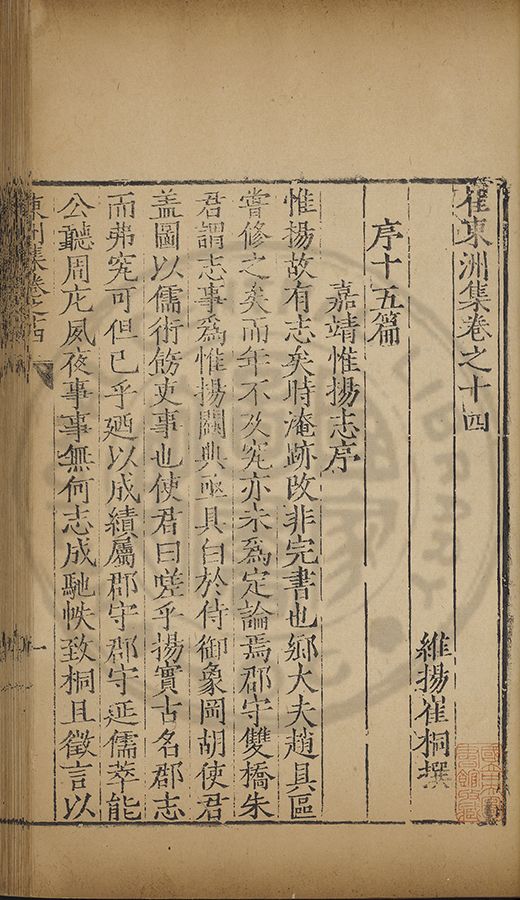 崔東洲集卷之十四
維揚崔桐撰
序十五篇
嘉靖惟揚志序
惟揚故有志矣時淹跡改非完書也鄉大夫趙具區
嘗修之矣而年不及究亦未爲定論焉郡守雙橋朱
君謂志事爲惟揚闕典亟具白於侍御象岡胡使君
盖圖以儒術飭吏事也使君曰嗟乎揚實古名郡志
而弗究可但已乎廼以成績屬郡守郡守延儒萃能
公聽周庀夙夜事事無何志成馳帙致桐且徵言以
東洲集卷之十四
一